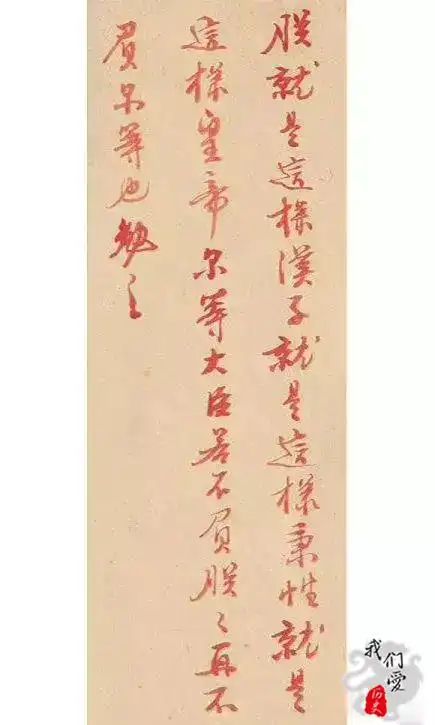 朕就是這樣漢子就是這樣秉性就是
這樣皇帝尔等大臣若不負朕〻再不
負尔等也勉之
我们爱
历史